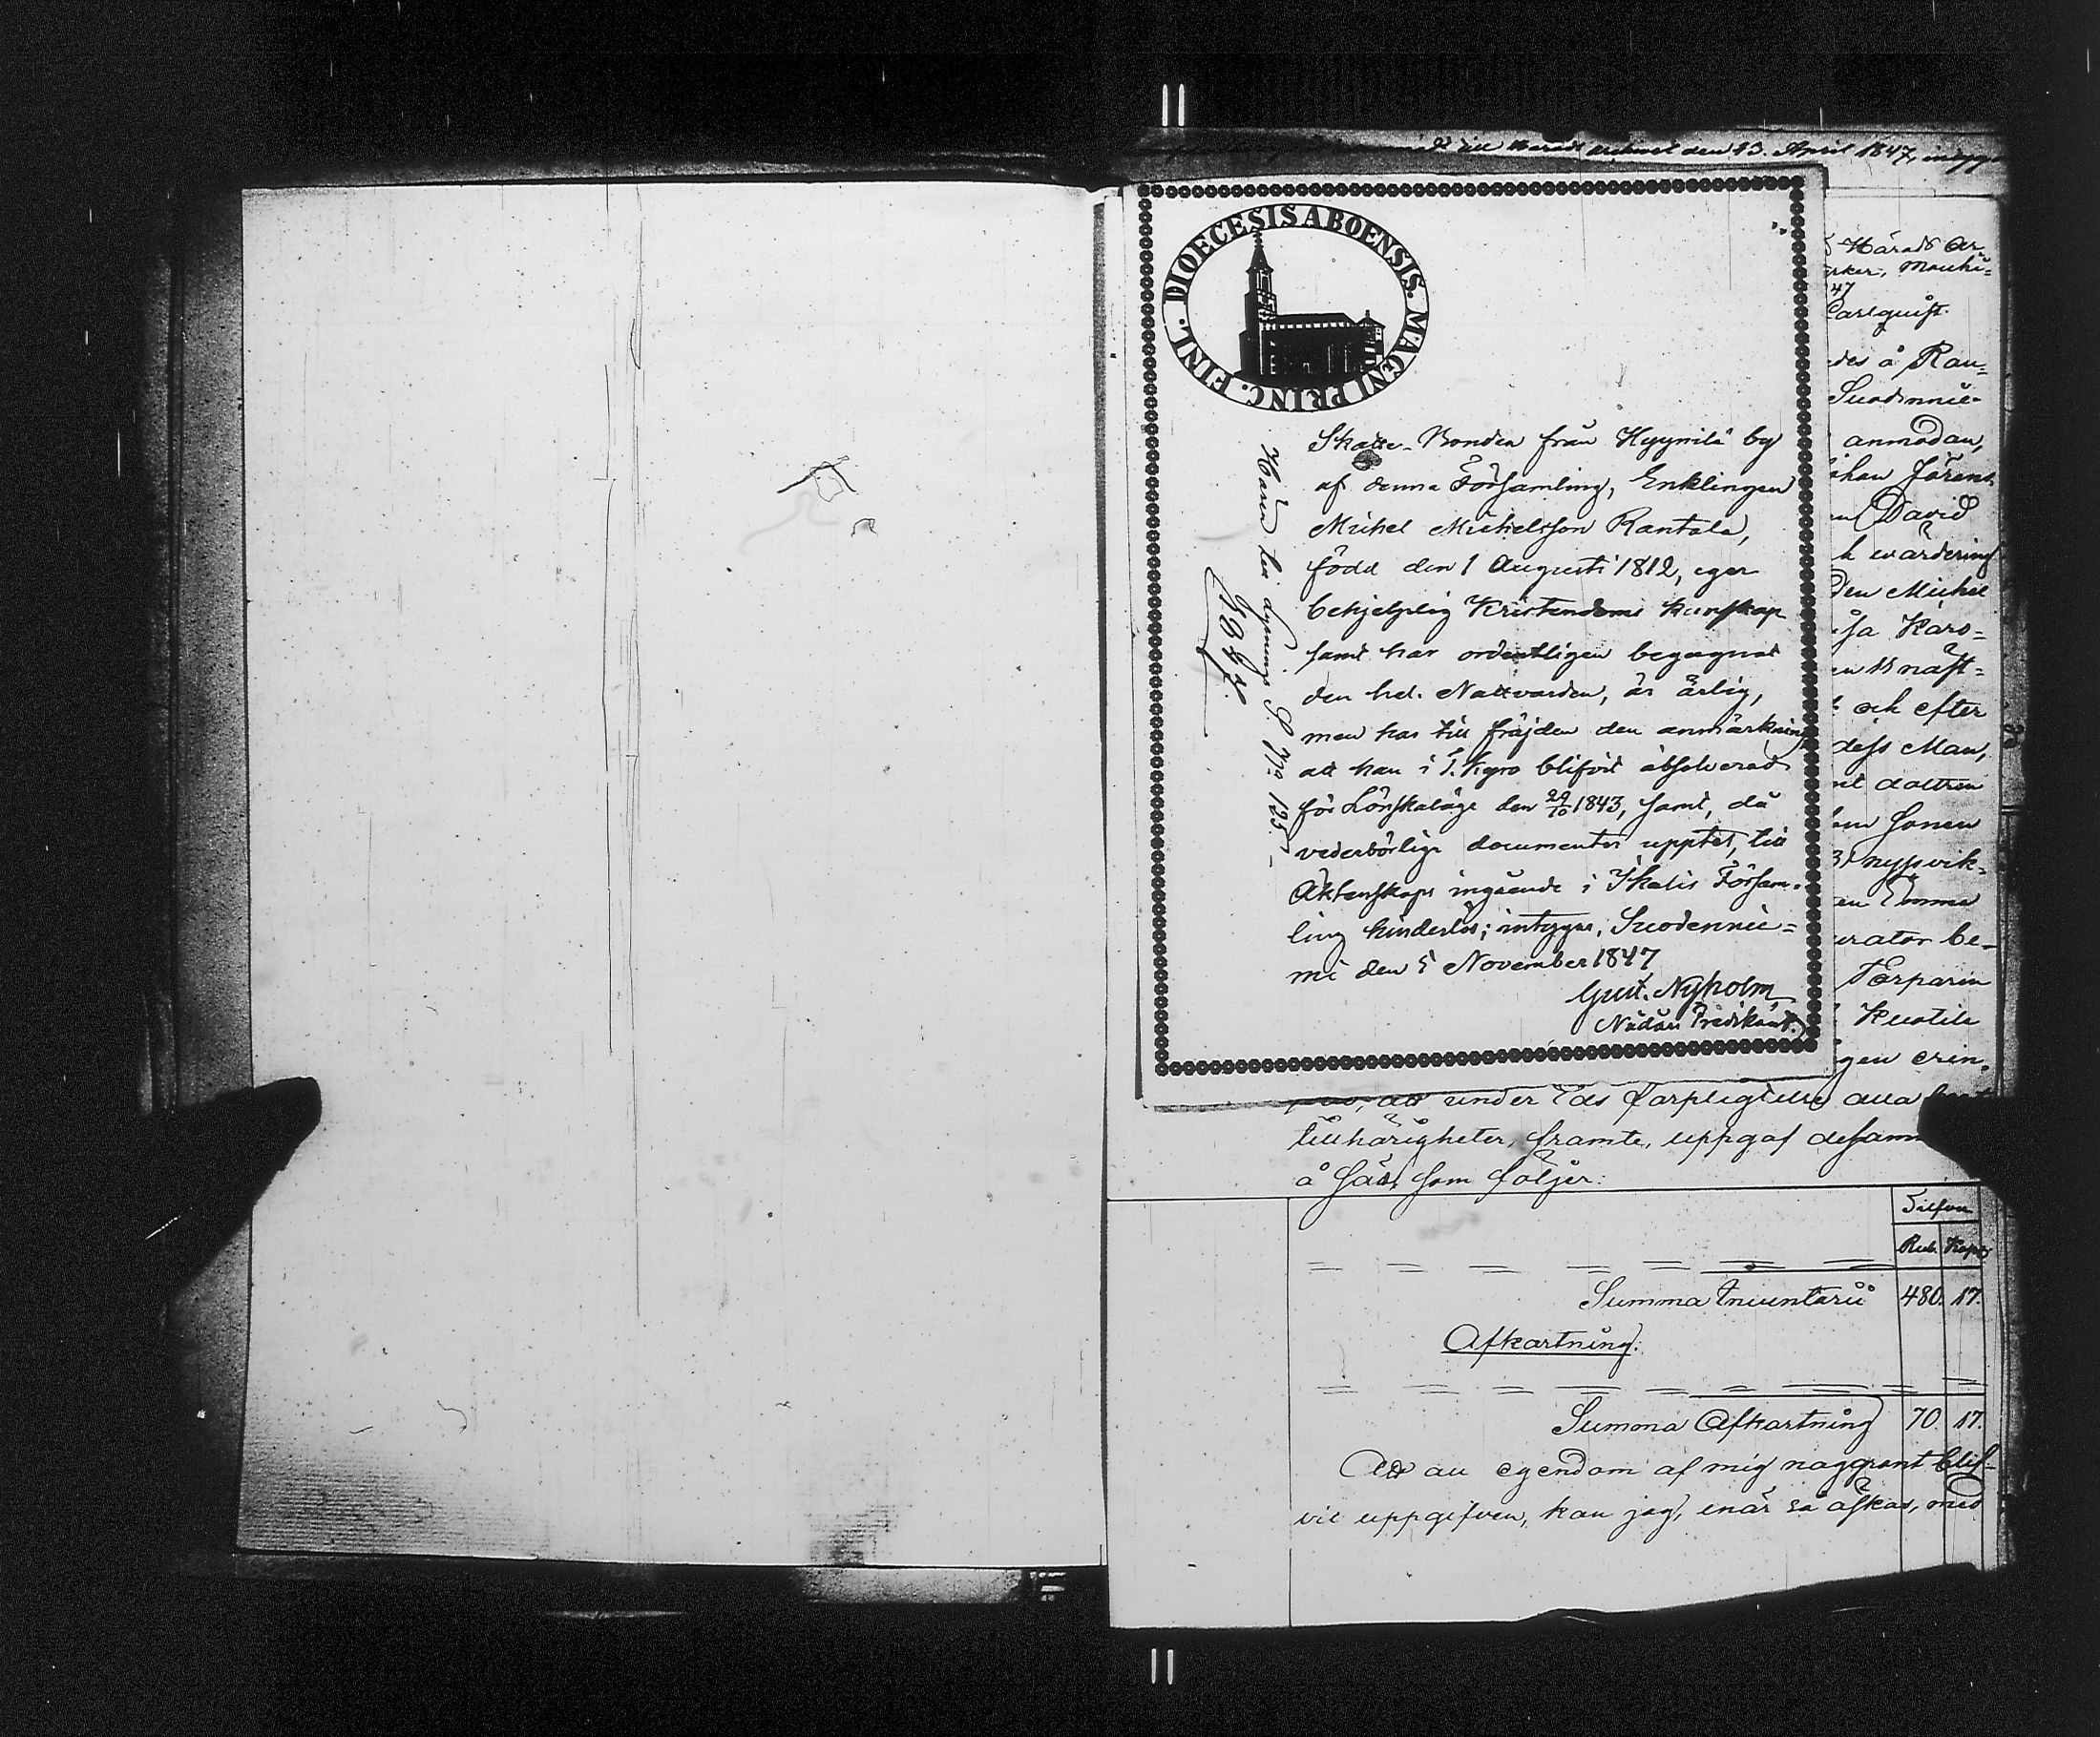 till Härads Archivet den 13. April 1847, intygar
DIOECESIS ABOENSIS. MAGNI PRINC. FINL.
Skatte-Bonden från Hyynilä by
af denna Församling, Enklingen
Michel Michelsson Rantala,
född den 1 Augusti 1812, eger
behjelplig Kristendoms kunskap
samt har ordentligen begagnat
den hel. Nattvarden, är ärlig,
men har till fräjden den anmärkning
att han i T. Kyro blifvit absolverad
för Lönskaläge den 29/10 1843, samt, då
vederbörliga documenter upptet, till
Äktenskaps ingående i Ikalis Försam-
ling hinderlös; intygar, Suodennie-
mi den 5 November 1847
Gust. Nyholm
Nådårs Predikant.
Härtill lysnings S. No 125.
Härads Ar
Carlquist.
des å Ran=
Suodennie-
anmodan,
Johan Jöranss.
David
h värdering
den Michel
sa Karo=
en Knäst=
och efter
dess Man,
nt dottren
em Sonen
31 nyssvik-
en Emma
urator be-
Torparen
Kuotila
gen erin-
att under Eds förpligtelse alla
tillhörigheter, framte, uppgaf desamm
å sätt, som följer:
Silfver
Rub. Kop.
Summa Inventarii 480. 17.
Afkortning:
Summa Afkortning 70. 17.
Att all egendom af mig noggrant blif-
vit uppgifven, kan jag, enär så äskas, med